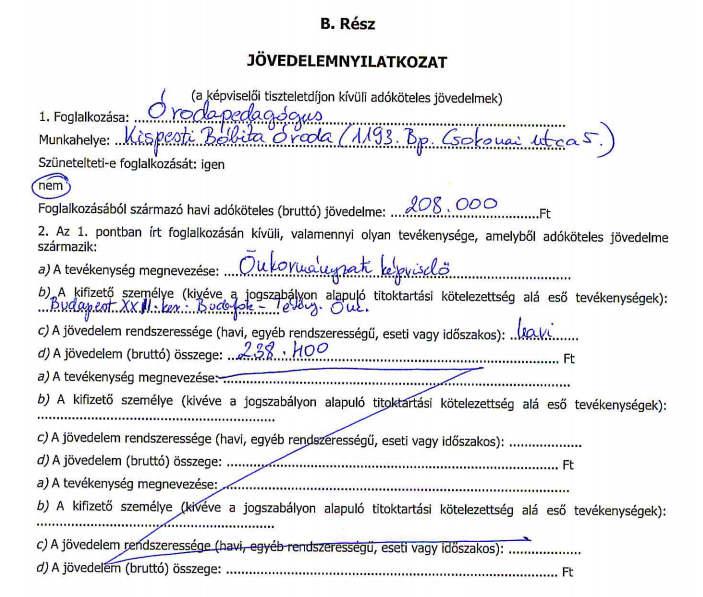 B. Rész
JÖVEDELEMNYILATKOZAT
(a képviselői tiszteletdíjon kívüli adóköteles jövedelmek)
1. Foglalkozása: Óvodapedagógus
Munkahelye: Kispesti Bóbita Óvoda (1193. Bp. Csokonai utca 5.)
Szünetelteti-e foglalkozását: igen
nem
Foglalkozásából származó havi adóköteles (bruttó) jövedelme: 208.000 Ft
2. Az 1. pontban írt foglalkozásán kívüli, valamennyi olyan tevékenysége, amelyből adóköteles jövedelme
származik:
a) A tevékenység megnevezése: Önkormányzati képviselő
b) A kifizető személye (kivéve a jogszabályon alapuló titoktartási kötelezettség alá eső tevékenységek):
Budapest XXII. ker. Budafok - Tétény. Önk.
c) A jövedelem rendszeressége (havi, egyéb rendszerességű, eseti vagy időszakos): havi
d) A jövedelem (bruttó) összege: 238.400 Ft
a) A tevékenység megnevezése:
b) A kifizető személye (kivéve a jogszabályon alapuló titoktartási kötelezettség alá eső tevékenységek):
c) A jövedelem rendszeressége (havi, egyéb rendszerességű, eseti vagy időszakos):
d) A jövedelem (bruttó) összege: Ft
a) A tevékenység megnevezése:
b) A kifizető személye (kivéve a jogszabályon alapuló titoktartási kötelezettség alá eső tevékenységek):
c) A jövedelem rendszeressége (havi, egyéb rendszerességű, eseti vagy időszakos):
d) A jövedelem (bruttó) összege: Ft